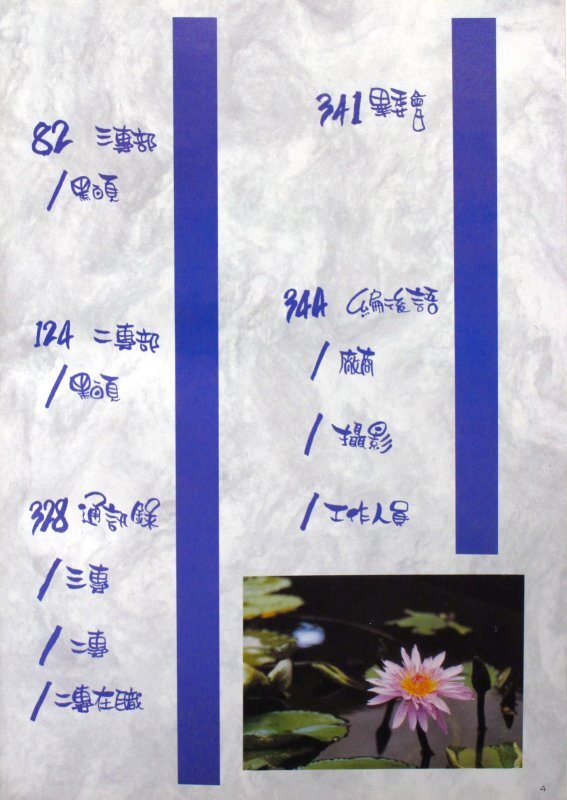 82 三專部
/黑白頁
124 二專部
/黑白頁
328 通訊錄
/三專
/二專
/二專在職
341 畢委會
344 編後語
/廠商
/攝影
/工作人員
4